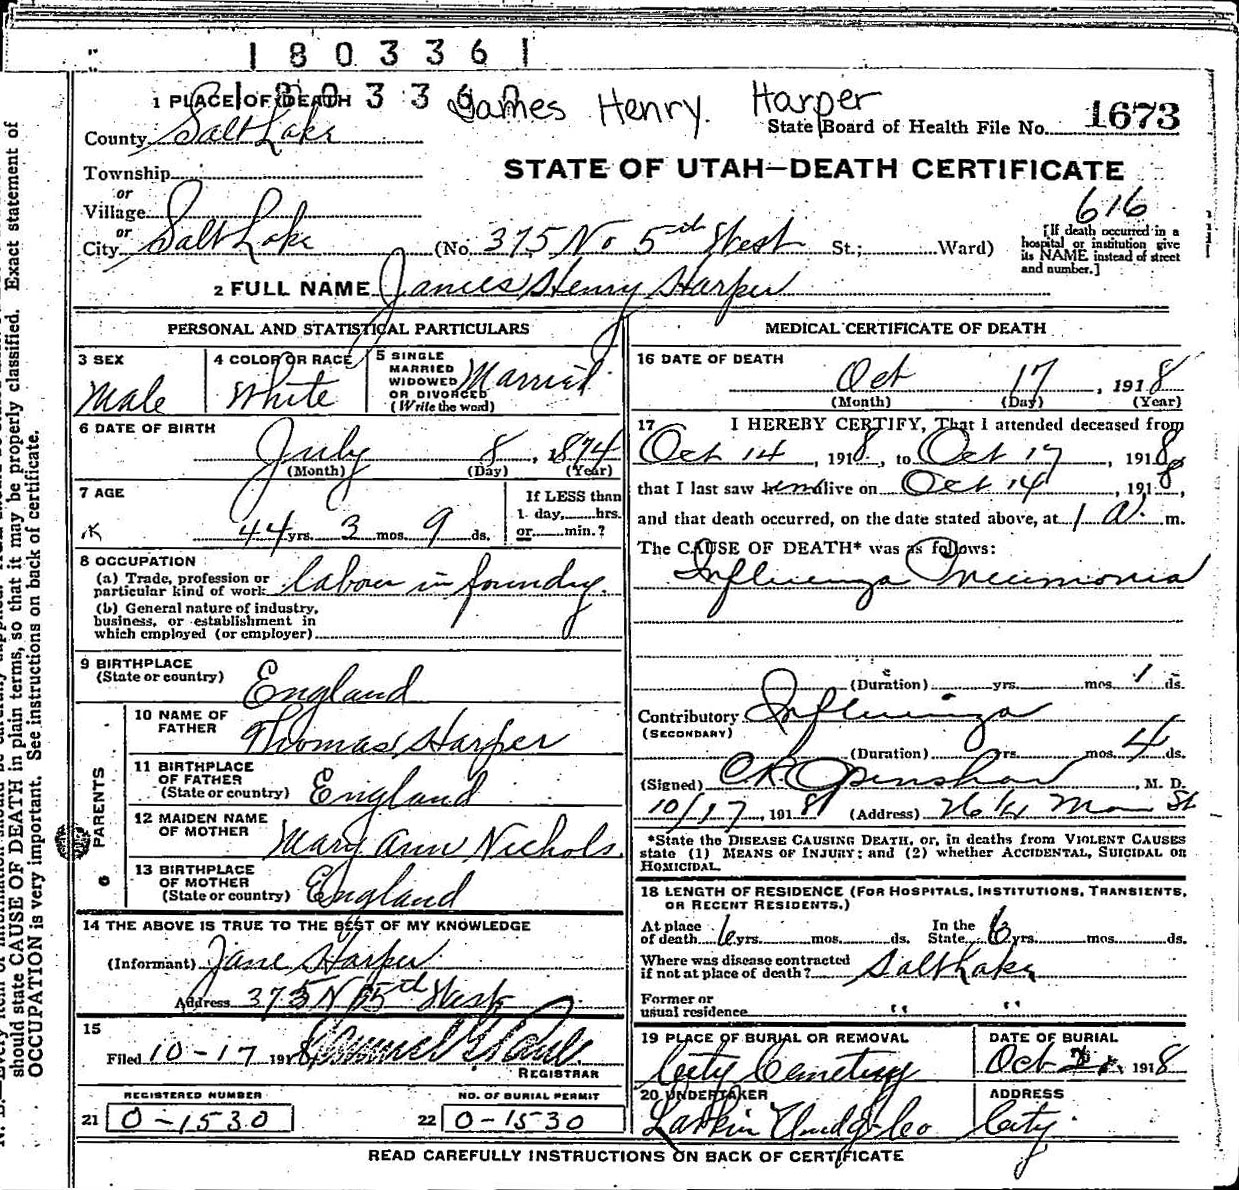 1803361
James Henry. Harper
1 PLACE OF DEATH
County Salt Lake
State Board of Health File No. 1673
Township
or
Village
or
City Salt Lake
STATE OF UTAH—DEATH CERTIFICATE
616
(No. 375 No 5th West St.; Ward)
[If death occurred in a
hospital or institution give
its NAME instead of street
and number.]
2 FULL NAME James Henry Harper
PERSONAL AND STATISTICAL PARTICULARS
3 SEX
Male
4 COLOR OR RACE
White
5 SINGLE
MARRIED
WIDOWED
OR DIVORCED
(Write the word)
Married
6 DATE OF BIRTH
July 8, 1874
(Month) (Day) (Year)
7 AGE
44 yrs. 3 mos. 9 ds.
If LESS than
1 day, hrs.
or min.?
8 OCCUPATION
(a) Trade, profession or
particular kind of work labour in foundry.
(b) General nature of industry,
business, or establishment in
which employed (or employer)
9 BIRTHPLACE
(State or country) England
PARENTS
10 NAME OF
FATHER Thomas Harper
11 BIRTHPLACE
OF FATHER
(State or country) England
12 MAIDEN NAME
OF MOTHER Mary Ann Nichols.
13 BIRTHPLACE
OF MOTHER
(State or country) England
14 THE ABOVE IS TRUE TO THE BEST OF MY KNOWLEDGE
(Informant) Jane Harper
Address 375 N 5th West
15
Filed 10-17 1918
REGISTRAR
REGISTERED NUMBER
21 0-1530
NO. OF BURIAL PERMIT
22 0-1530
MEDICAL CERTIFICATE OF DEATH
16 DATE OF DEATH
Oct 17, 1918
(Month) (Day) (Year)
17 I HEREBY CERTIFY, That I attended deceased from
Oct 14, 1918, to Oct 17, 1918,
that I last saw him alive on Oct 14, 1918,
and that death occurred, on the date stated above, at 1 a. m.
The CAUSE OF DEATH* was as follows:
Influenza Pneumonia
(Duration) yrs. mos. 1 ds.
Contributory Influenza
(SECONDARY)
(Duration) yrs. mos. 4 ds.
(Signed) C R Openshaw, M. D.
10/17, 1918 (Address) Main St
*State the DISEASE CAUSING DEATH, or, in deaths from VIOLENT CAUSES
state (1) MEANS OF INJURY; and (2) whether ACCIDENTAL, SUICIDAL OR
HOMICIDAL.
18 LENGTH OF RESIDENCE (FOR HOSPITALS, INSTITUTIONS, TRANSIENTS,
OR RECENT RESIDENTS.)
At place
of death 6 yrs. mos. ds.
In the
State 6 yrs. mos. ds.
Where was disease contracted
if not at place of death? Salt Lake
Former or
usual residence " "
19 PLACE OF BURIAL OR REMOVAL
City Cemetery
DATE OF BURIAL
Oct 1918
20 UNDERTAKER
Larkin Undg Co
ADDRESS
City.
READ CAREFULLY INSTRUCTIONS ON BACK OF CERTIFICATE
should state CAUSE OF DEATH in plain terms, so that it may be properly classified. Exact statement of
OCCUPATION is very important. See instructions on back of certificate.